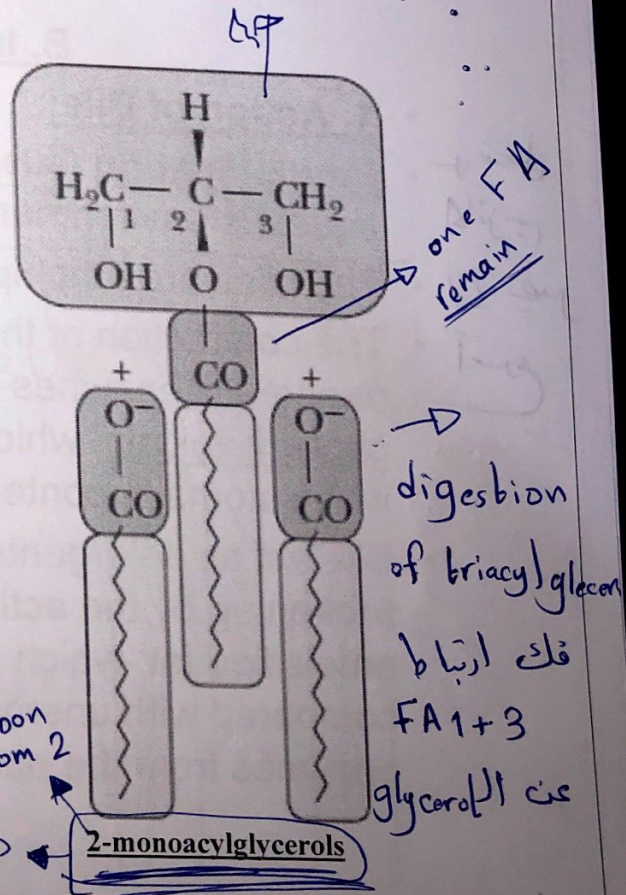 H
H₂C — C — CH₂
1 2 3
OH O OH
one FA
remain
+ CO +
O⁻ O⁻
CO CO
digestion
of triacylglecer
فك ارتباط
FA 1+3
عن الـ glycerol
oon
om 2
2-monoacylglycerols